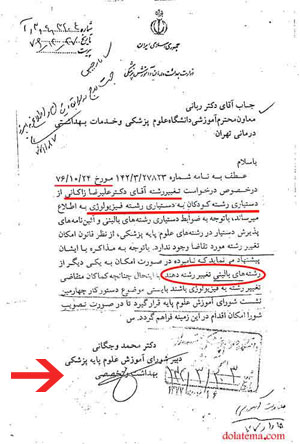 جمهوری اسلامی ایران
شماره
تاریخ
جناب آقای دکتر ربانی
معاون محترم آموزشی دانشگاه علوم پزشکی و خدمات بهداشتی
درمانی تهران
باسلام
عطف به نامه شماره ۱۴۲/۳/۲۷۸۲۳ مورخ ۷۶/۱۰/۲۴
درخصوص درخواست تغییر رشته آقای دکتر علیرضا زاکانی از
دستیاری رشته کودکان به دستیاری رشته فیزیولوژی به اطلاع
میرساند، باتوجه به ضوابط دستیاری رشته‌های بالینی و آئین‌نامه‌های
پذیرش دستیار در رشته‌های علوم پایه پزشکی، از نظر قانون امکان
تغییر رشته مورد تقاضا وجود ندارد. باتوجه به مذاکره با ایشان
پیشنهاد می‌نماید که نامبرده در صورت امکان به یکی دیگر از
رشته‌های بالینی تغییر رشته دهند. اینحال چنانچه کماکان متقاضی
تغییر رشته به فیزیولوژی باشند بایستی موضوع دستور کار چهارمین
نشست شورای آموزش علوم پایه قرارگیرد تا در صورت تصویب
شورا امکان اقدام در این زمینه فراهم گردد.
دکتر محمد وجگانی
دبیر شورای آموزش علوم پایه پزشکی
بهداشت و تخصصی
dolatema.com